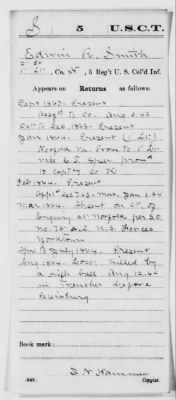 S 5 U.S.C.T.
Edwin R. Smith
1" Lt., Co. , 5 Reg't U. S. Col'd Inf.
Appears on Returns as follows:
Sept 1863. Present
Assg'd to Co. Aug 2.63
Oct to Dec 1863. Present
Jan 1864. ( 2 Lt)
Norfolk Va. From to 1" Lt.
vice E.F. prom'd
to Capt Co.
Feb 1864. Present
Mar 1864. Absent on Ct. of
Enquiry at Norfolk per S.O.
No. U.S. Forces
Yorktown
to July 1864. Present
Aug 1864. Loss. Killed by
a rifle ball Aug 12.64
in Trenches before
Petersburg
Book mark:
(546)
Copyist.